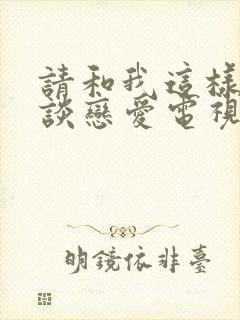 請和我這樣
談戀愛電視
明鏡依非臺